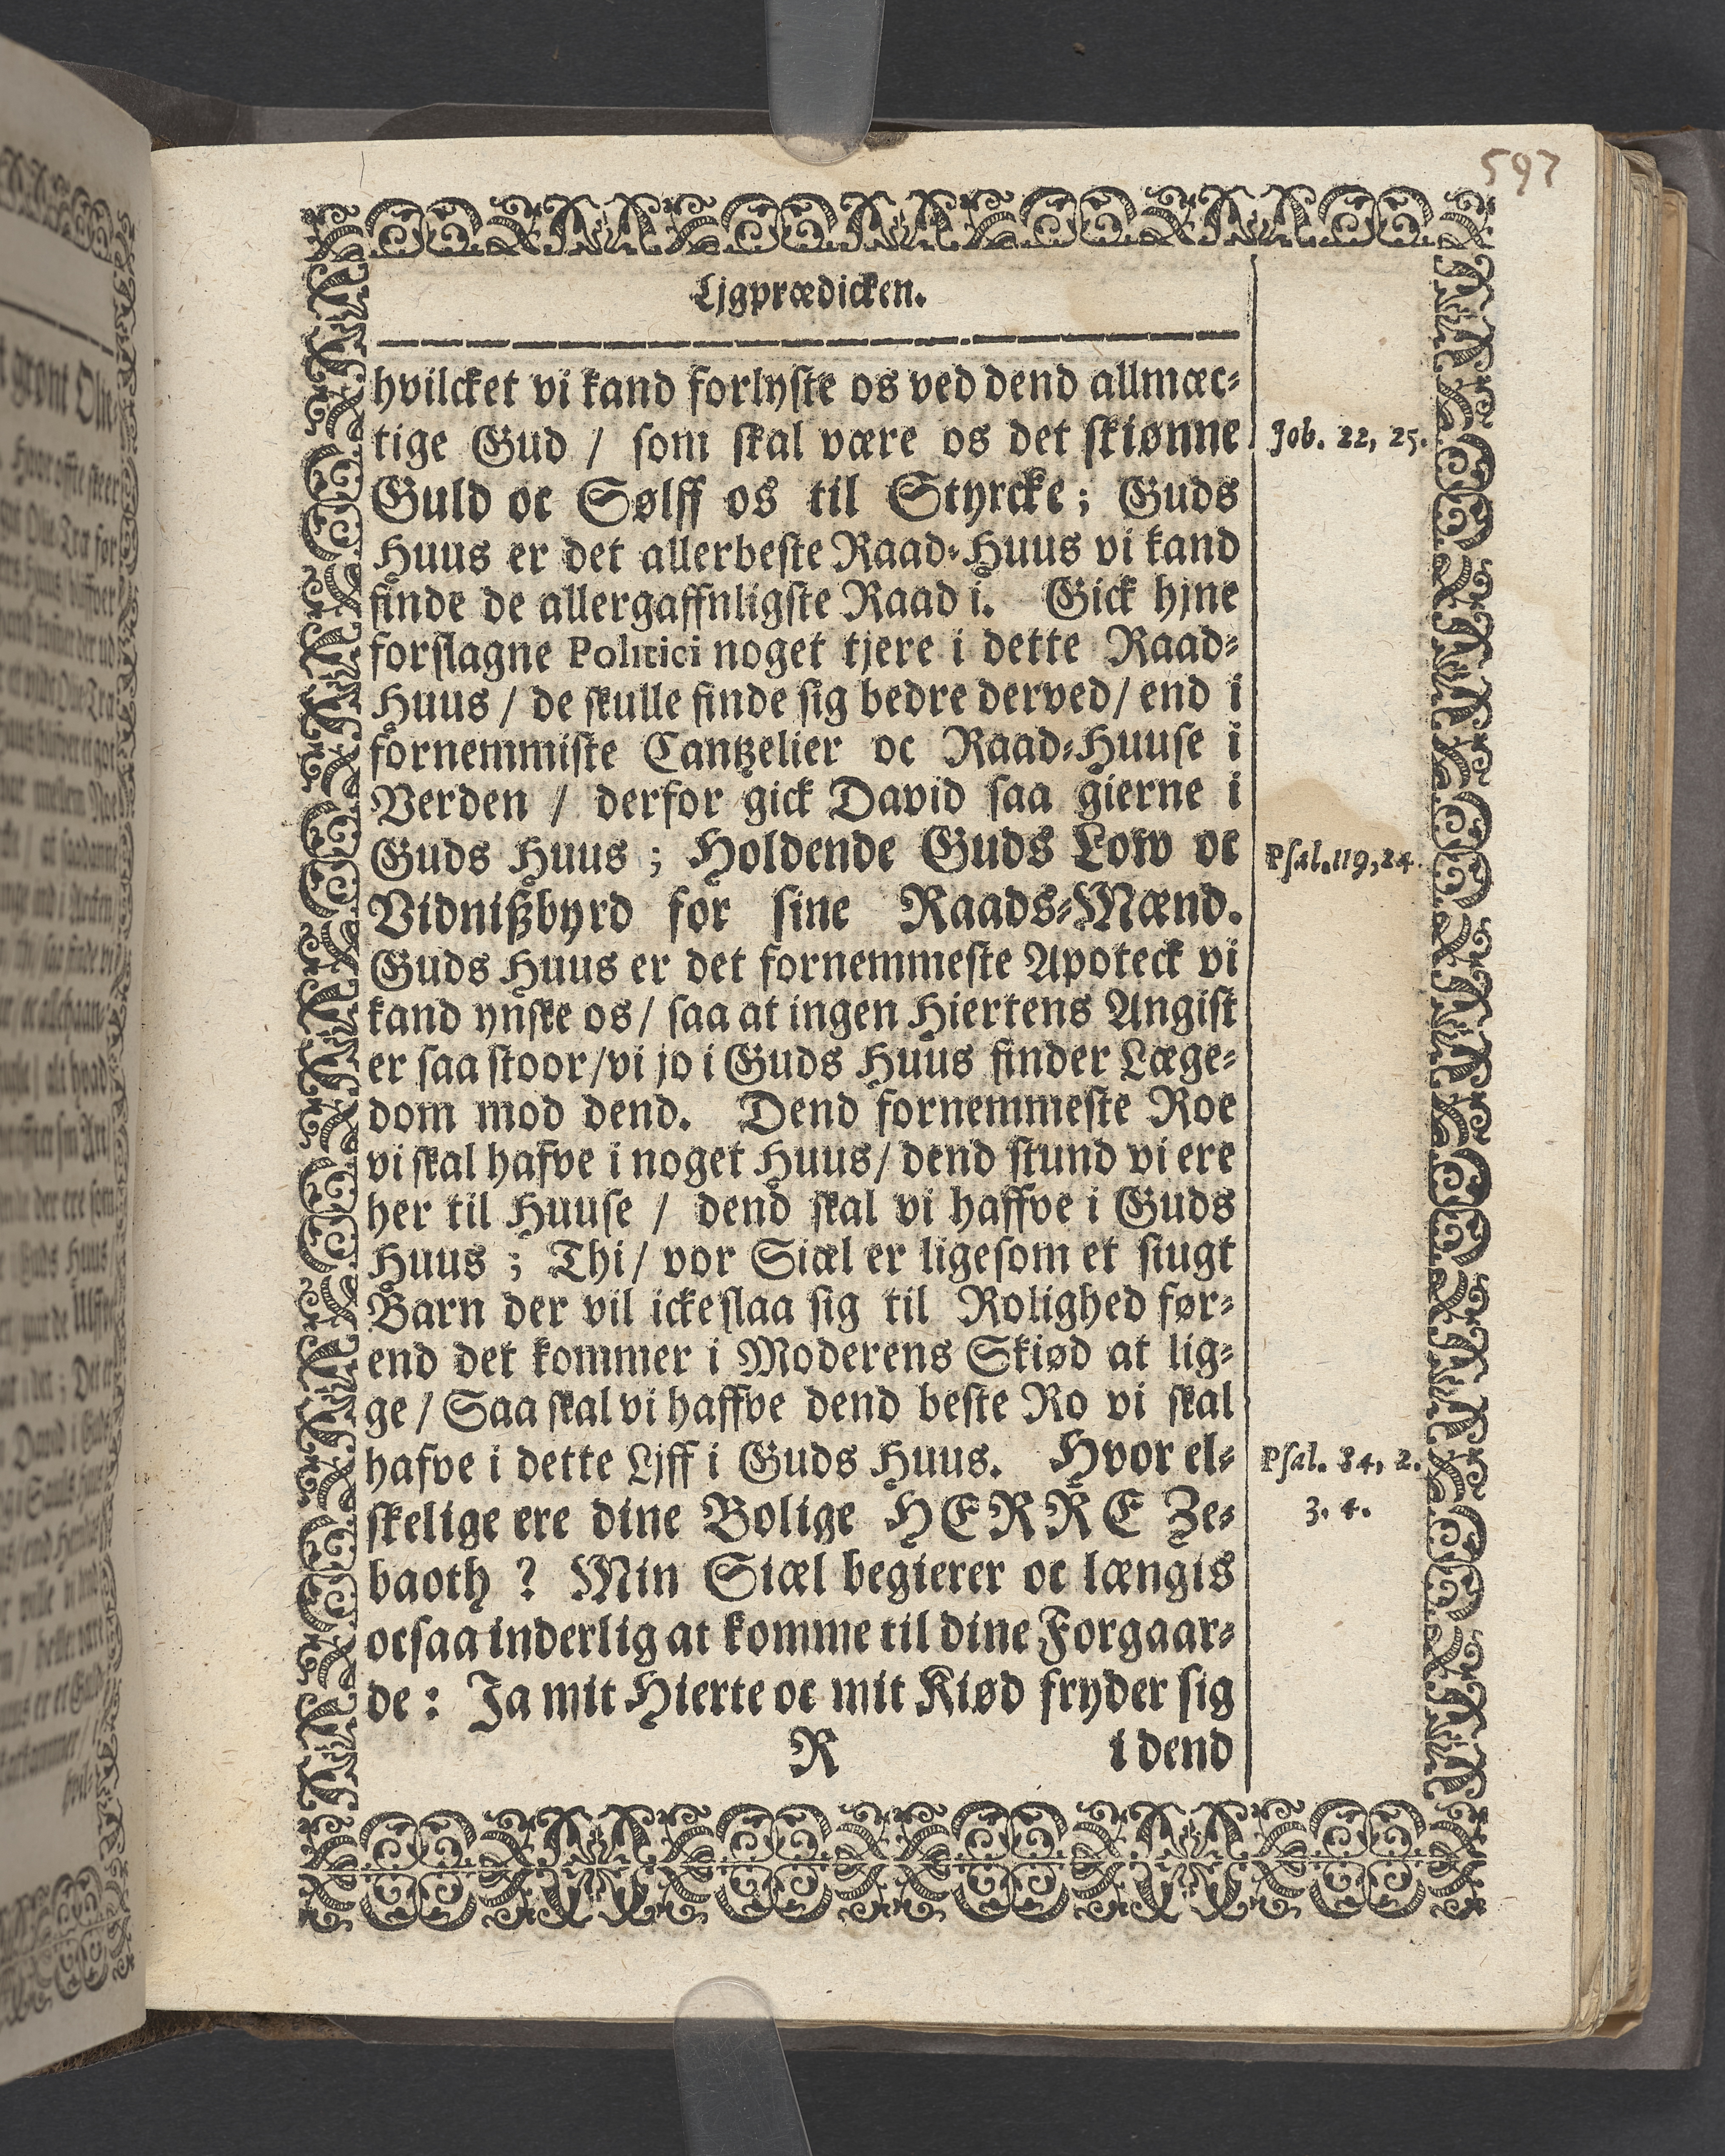 597
Ljgprædicken.
hvilcket vi kand forlyste os ved dend allmæc-
tige Gud / som skal være os det skiønne
Job. 22, 25.
Guld oc Sølff os til Styrcke; Guds
Huus er det allerbeste Raad-Huus vi kand
finde de allergaffnligste Raad i. Gick hjne
forslagne Politici noget tjere i dette Raad-
Huus / de skulle finde sig bedre derved / end i
fornemmiste Cantzelier oc Raad-Huuse i
Verden / derfor gick David saa gierne i
Guds Huus ; Holdende Guds Low oc
Psal. 119, 24.
Vidnißbyrd for sine Raads-Mænd.
Guds Huus er det fornemmeste Apoteck vi
kand ynske os / saa at ingen Hiertens Angist
er saa stoor / vi jo i Guds Huus finder Læge-
dom mod dend. Dend fornemmeste Roe
vi skal hafve i noget Huus / dend stund vi ere
her til Huuse / dend skal vi haffve i Guds
Huus ; Thi / vor Siæl er ligesom et siugt
Barn der vil icke slaa sig til Rolighed før-
end det kommer i Moderens Skiød at lig-
ge / Saa skal vi haffve dend beste Ro vi skal
hafve i dette Ljff i Guds Huus. Hvor el-
Psal. 84, 2.
3. 4.
skelige ere dine Bolige HERRE Ze-
baoth ? Min Siæl begierer oc længis
ocsaa inderlig at komme til dine Forgaar-
de : Ja mit Hierte oc mit Kiød fryder sig
R i dend